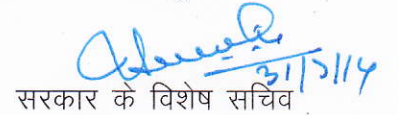 31/7/14
सरकार के विशेष सचिव